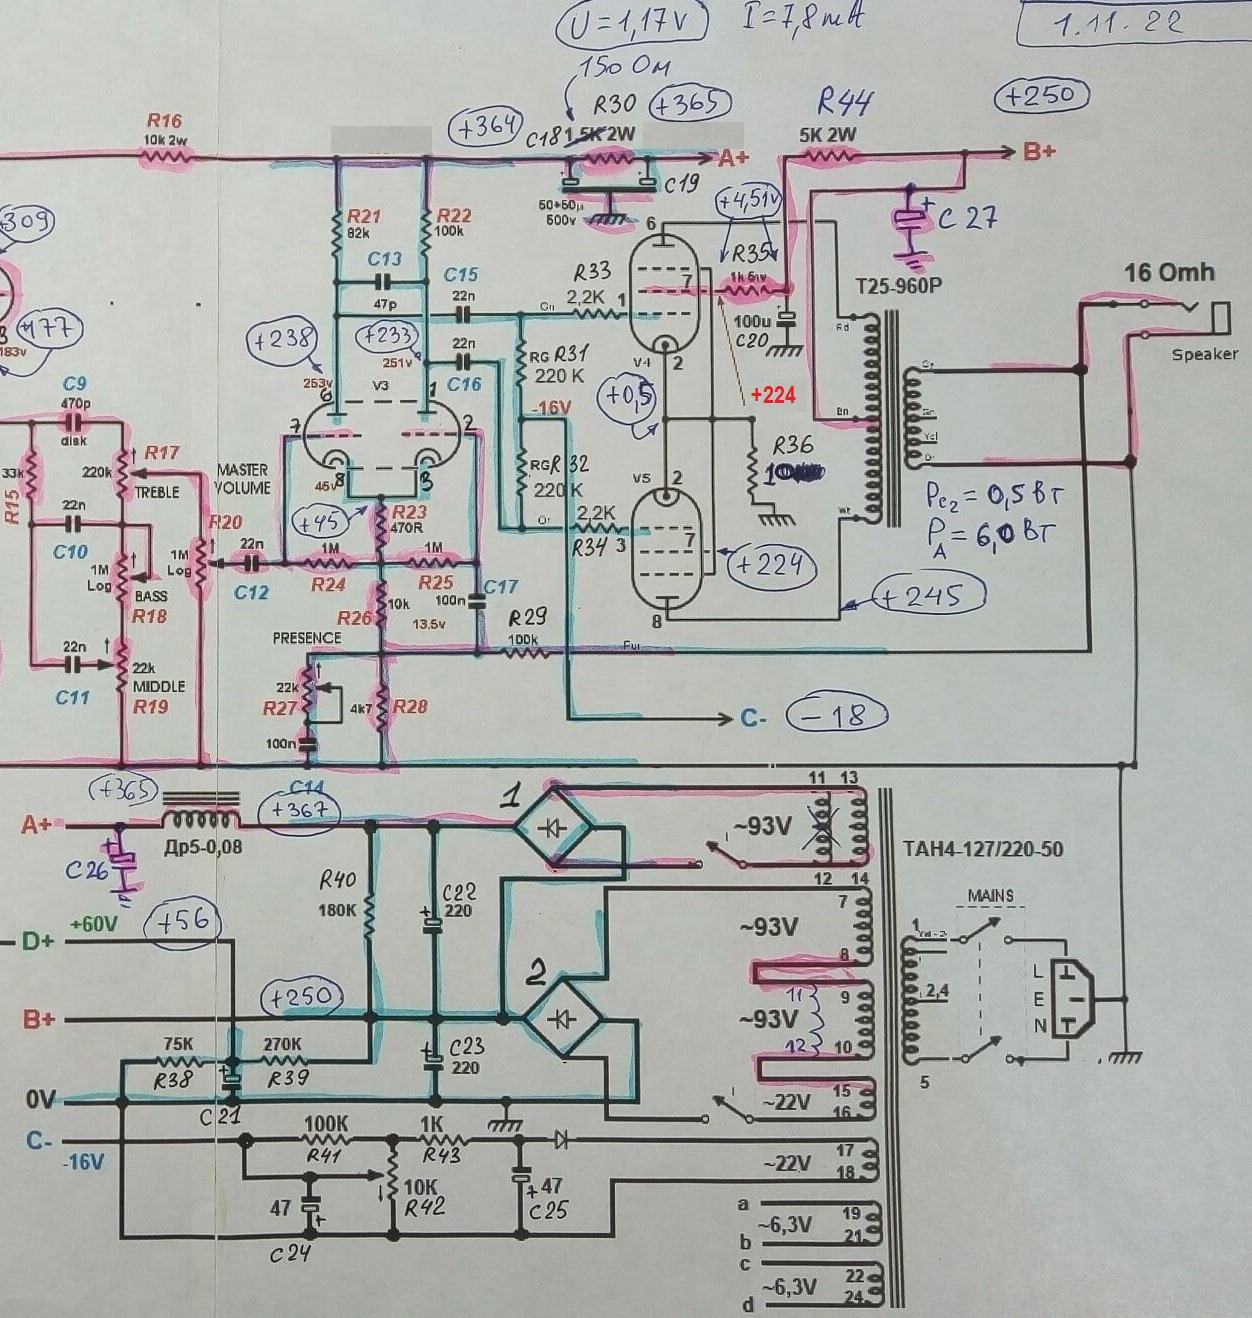 U = 1,17 V
I = 7,8 mA
1.11.22
150 Ом
R16
10k 2w
+364
C18
1,5K 2W
R30
+365
A+
C19
50+50µ
500v
R44
5K 2W
+250
B+
C 27
+309
+177
183v
R21
82k
R22
100k
C13
47p
C15
22n
22n
C16
+238
253v
+233
251v
V3
6
1
7
2
8
3
45v
+45
R23
470R
R33
2,2K
1
6
7
+4,51v
R35
100u
C20
V4
2
+0,5
+224
RG R31
220 K
-16V
RG R32
220 K
2,2K
R34
3
V5
2
7
8
R36
+224
+245
T25-960P
Rd
Bn
Wt
16 Omh
Speaker
Pc2 = 0,5 Вт
PA = 6,0 Вт
C9
470p
disk
33k
R15
220k
R17
TREBLE
22n
C10
1M
Log
BASS
R18
22n
C11
22k
MIDDLE
R19
MASTER
VOLUME
R20
1M
Log
22n
C12
1M
R24
1M
R25
R26
10k
13.5v
100n
C17
R29
100k
PRESENCE
22k
R27
4k7
R28
100n
C14
C-
-18
+365
A+
Др5-0,08
+367
C26
1
~93V
11
13
12
14
ТАН4-127/220-50
R40
180K
C22
220
D+
+60V
+56
~93V
7
8
2
+250
B+
9
10
11
12
~93V
75K
R38
270K
R39
C23
220
C21
0V
~22V
15
16
C-
-16V
100K
R41
1K
R43
10K
R42
47
C24
47
C25
~22V
17
18
a
~6,3V
b
19
21
c
~6,3V
d
22
24
MAINS
1
2,4
5
L
E
N